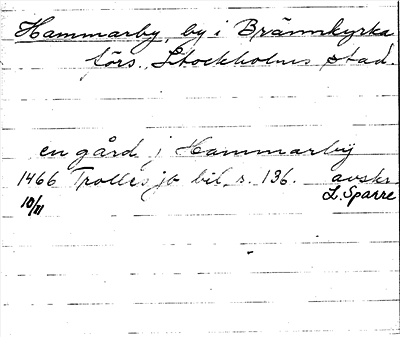 Hammarby, by i Brännkyrka
förs., Stockholms stad.
en gård i Hammarby
1466 Trolles jb bil. s. 136. avskr.
10/11 L. Sparre